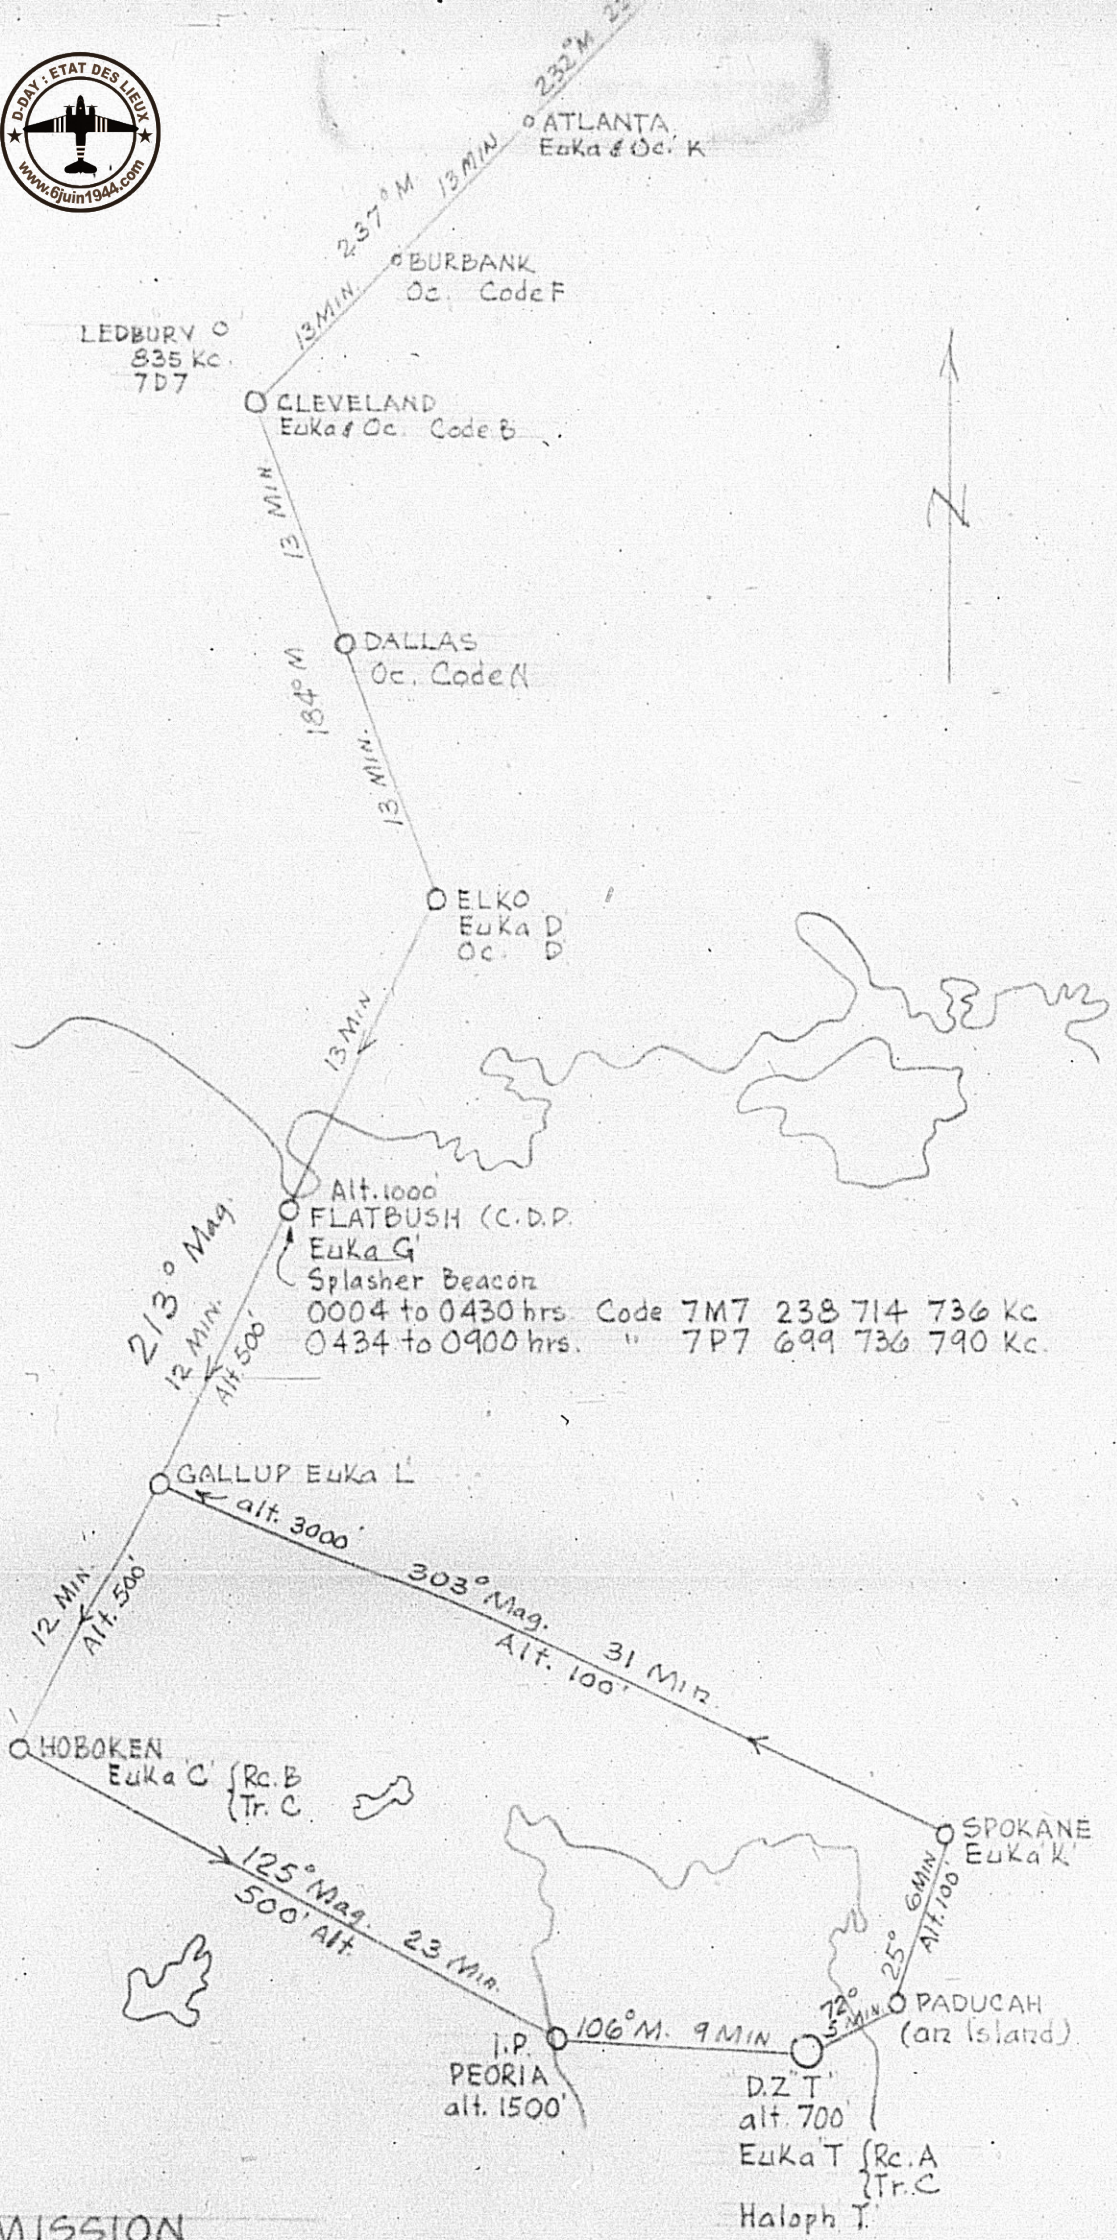 D-DAY : ETAT DES LIEUX
www.6juin1944.com
232° M
ATLANTA
Euka & Oc. K
13 MIN
237° M
BURBANK
Oc. Code F
13 MIN.
LEDBURY
835 Kc.
7D7
CLEVELAND
Euka & Oc. Code B
13 MIN
N
DALLAS
Oc. Code N
184° M
13 MIN.
ELKO
Euka D
Oc. D
13 MIN
Alt. 1000'
FLATBUSH (C.D.P.
Euka G'
Splasher Beacon
0004 to 0430 hrs. Code 7M7 238 714 736 Kc
0434 to 0900 hrs. " 7P7 699 736 790 Kc.
213° Mag.
12 MIN.
Alt. 500'
GALLUP Euka L'
alt. 3000'
303° Mag.
Alt. 100'
31 Min.
12 MIN.
Alt. 500'
HOBOKEN
Euka 'C' {Rc. B
{Tr. C
125° Mag.
500' Alt.
23 Min.
SPOKANE
Euka 'K'
6 MIN
Alt. 100'
25°
PADUCAH
(an Island)
72°
5 MIN.
106° M. 9 MIN
I.P.
PEORIA
alt. 1500'
D.Z "T"
alt. 700'
Euka 'T' {Rc. A
{Tr. C
Haloph T.
MISSION